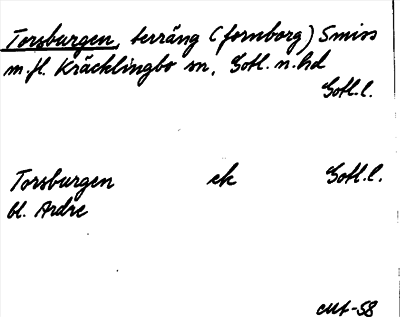 Torsburgen, terräng (fornborg) Smiss
m.fl. Kräcklingbo sn, Gotl. n. hd
Gotl. l.
Torsburgen ek Gotl. l.
bl. Ardre
-58